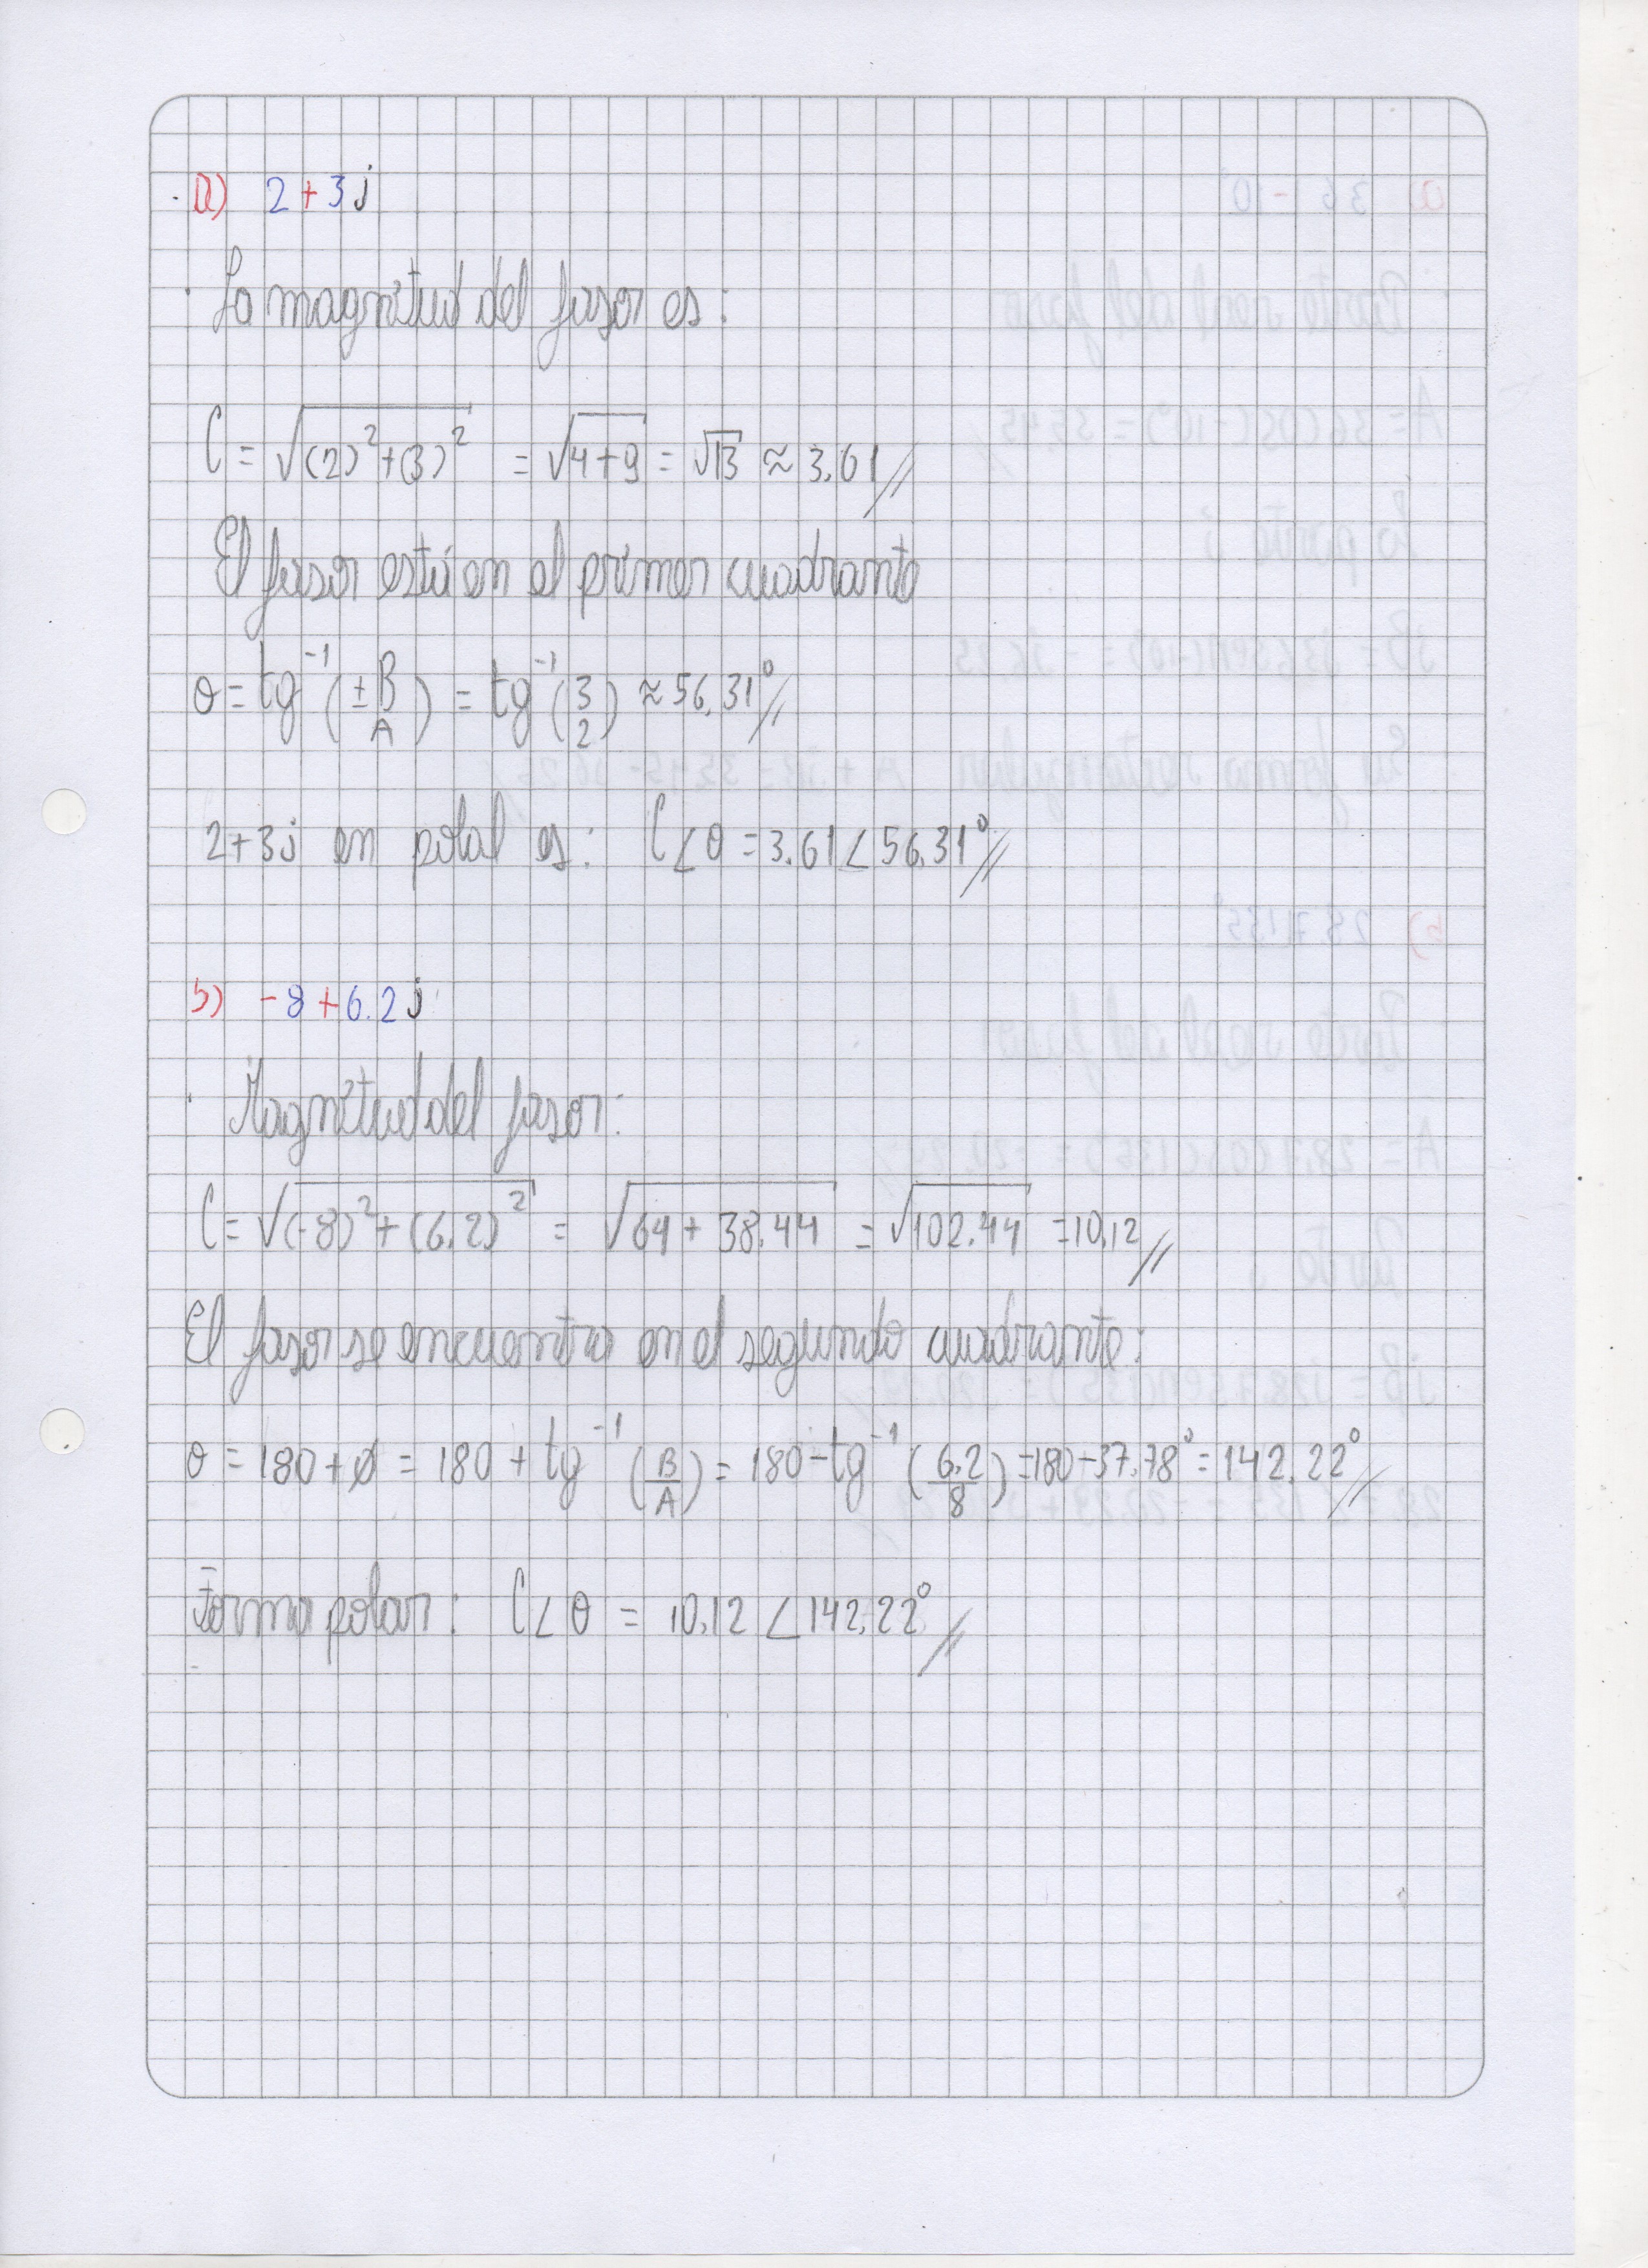 a) 2+3j
La magnitud del fasor es:
C = √(2)²+(3)² = √4+9 = √13 ≈ 3.61
El fasor está en el primer cuadrante
θ = tg⁻¹ (± B/A) = tg⁻¹ (3/2) ≈ 56.31°
2+3j en polal es: C∠θ = 3.61∠56.31°
b) -8+6.2j
Magnitud del fasor:
C = √(-8)²+(6.2)² = √64+38.44 = √102.44 = 10.12
El fasor se encuentra en el segundo cuadrante:
θ = 180+ø = 180 + tg⁻¹ (B/A) = 180-tg⁻¹ (6.2/8) = 180-37.78° = 142.22°
Forma polar: C∠θ = 10.12∠142.22°